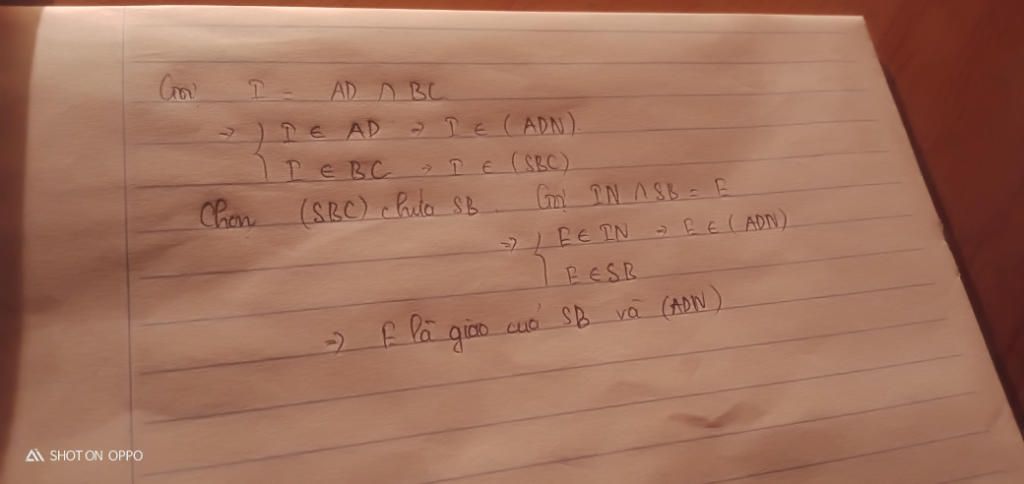 Gọi I = AD ∩ BC
=> { I ∈ AD => I ∈ (ADN).
I ∈ BC => I ∈ (SBC)
Chọn (SBC) chứa SB. Gọi IN ∩ SB = E
=> { E ∈ IN => E ∈ (ADN)
E ∈ SB
=> E là giao của SB và (ADN)
SHOT ON OPPO